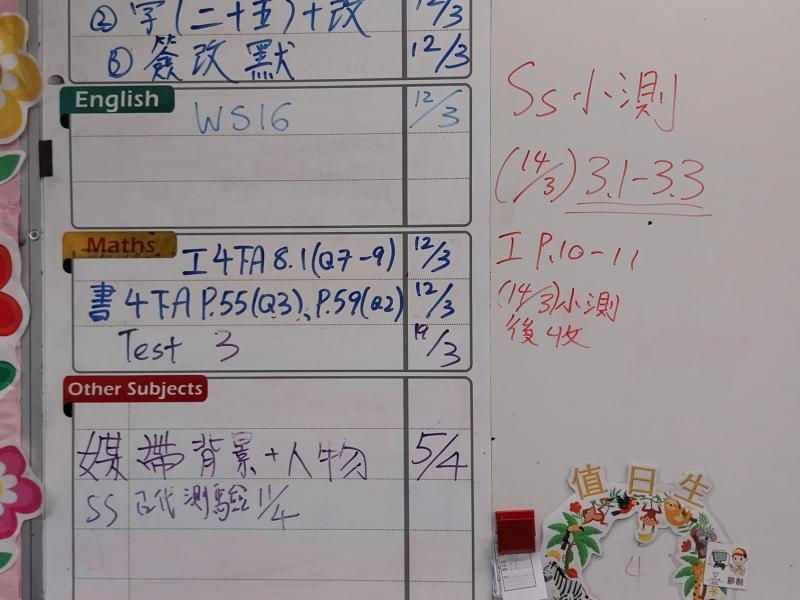 ② 字(二十五)+改 12/3
③ 簽改默 12/3
English
WS16 12/3
Maths
工4下A 8.1(Q7-9) 12/3
書4下A P.55(Q3)、P.59(Q2) 12/3
Test 3 19/3
Other Subjects
媒 帶背景+人物 5/4
SS 古代測驗 11/4
Ss小測
(14/3) 3.1-3.3
工 P.10-11
(14/3)小測
後收
值日生
4
節制